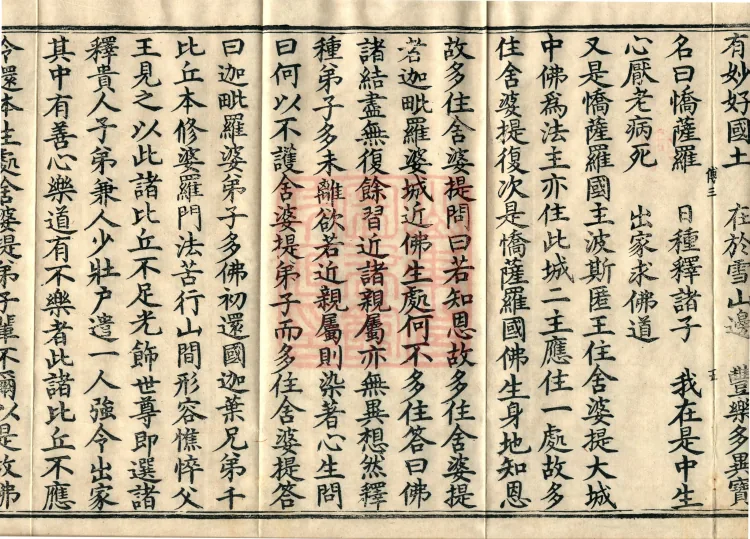 有妙好國土　在於雪山邊　豐樂多異寶
傅三　五
名曰憍薩羅　日種釋諸子　我在是中生
心厭老病死　出家求佛道
又是憍薩羅國主波斯匿王住舍婆提大城
中佛為法主亦住此城二主應住一處故多
住舍婆提復次是憍薩羅國佛生身地知恩
故多住舍婆提問曰若知恩故多住舍婆提
者迦毗羅婆城近佛生處何不多住答曰佛
諸結盡無復餘習近諸親屬亦無異想然釋
種弟子多未離欲若近親屬則染著心生問
曰何以不護舍婆提弟子而多住舍婆提答
曰迦毗羅婆弟子多佛初還國迦葉兄弟千
比丘本修婆羅門法苦行山間形容憔悴父
王見之以此諸比丘不足光飾世尊即選諸
釋貴人子弟兼人少壯戶遣一人強令出家
其中有善心樂道有不樂者此諸比丘不應
令還本生處舍婆提弟子輩不爾以是故佛